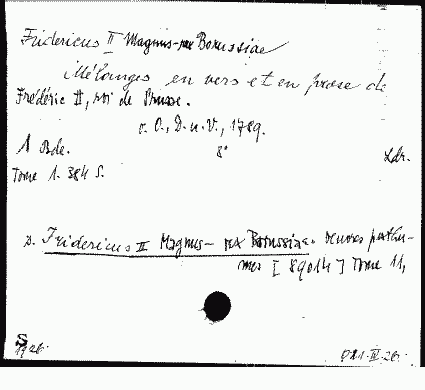 Fridericus II Magnus-rex Borussiae
Mélanges en vers et en prose de
Frédéric II, roi de Prusse.
o. O., D. u. V., 1789.
1 Bde. 8° Ldr.
Tome 1. 384 S.
D. Fridericus II Magnus- rex Borussiae. oeuvres posthu-
mes [89014] Tome 11,
S
1926. 081-IV-26.